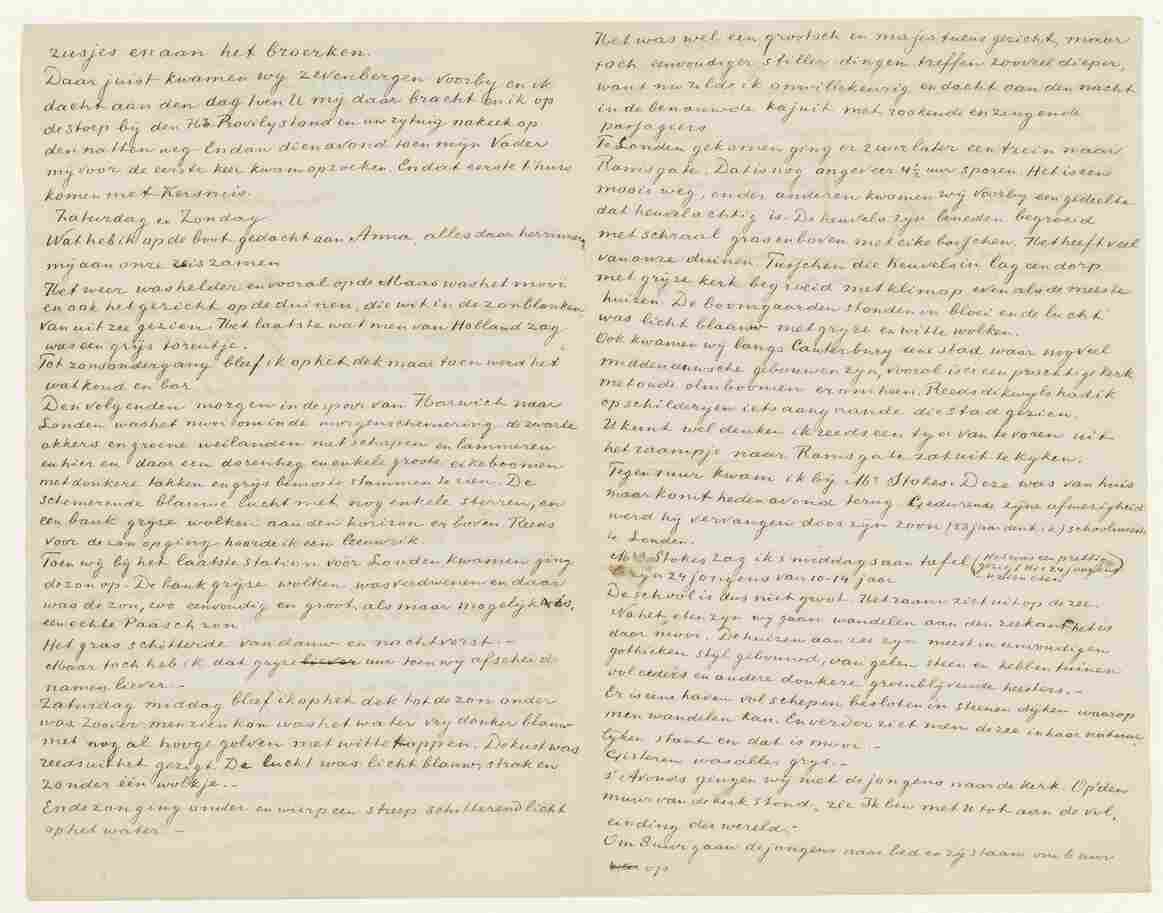 zusjes en aan het broerken.
Daar juist kwamen wij Zevenbergen voorby en ik
dacht aan den dag toen U mij daar bracht en ik op
de stoep bij den Hr Provily stond en uw rytuig nakeek op
den natten weg. En dan dien avond toen myn Vader
my voor de eerste keer kwam opzoeken. En dat eerste thuis
komen met Kersmis.
Zaturdag en Zondag
Wat heb ik op de boot gedacht aan Anna, alles daar herinnerde
mij aan onze reis zamen
Het weer was helder en vooral op de Maas was het mooi
en ook het gezicht op de duinen, die wit in de zon blonken
van uit zee gezien. Het laatste wat men van Holland zag
was een grijs torentje.
Tot zonsondergang bleef ik op het dek maar toen werd het
wat koud en bar
Den volgenden morgen in de spoor van Harwich naar
Londen was het mooi om in de morgenschemering de zwarte
akkers en groene weilanden met schapen en lammeren
en hier en daar een dorenheg en enkele groote eikeboomen
met donkere takken en grijs bemoste stammen te zien. De
schemerende blauwe lucht met nog enkele sterren, en
een bank gryze wolken aan den horizon er boven. Reeds
voor de zon opging hoorde ik een leeuwrik.
Toen wij by het laatste station voor Londen kwamen ging
de zon op. De bank gryze wolken was verdwenen en daar
was de zon, zoo eenvoudig en groot, als maar mogelijk is,
een echte Paaschzon.
Het gras schitterde van dauw en nachtvorst.–
Maar toch heb ik dat gryze liever uur toen wij afscheid
namen liever.–
Zaturdag middag bleef ik op het dek tot de zon onder
was Zoover men zien kon was het water vry donker blauw
met nog al hooge golven met witte koppen. De kust was
reeds uit het gezigt. De lucht was licht blauw, strak en
zonder één wolkje.–
En de zon ging onder en wierp een streep schitterend licht
op het water.–
Het was wel een grootsch en majestueus gezicht, maar
toch eenvoudiger stiller dingen treffen zooveel dieper,
want nu rilde ik onwillekeurig en dacht aan den nacht
in de benauwde kajuit met rookende en zingende
passagiers
Te Londen gekomen ging er 2 uur later een trein naar
Ramsgate. Dat is nog ongeveer 4½ uur sporen. Het is een
mooie weg, onder anderen kwamen wij voorby een gedeelte
dat heuvelachtig is. De heuvels zyn beneden begroeid
met schraal gras en boven met eikebosschen. Het heeft veel
van onze duinen. Tusschen die heuvels in lag een dorp
met gryze kerk begroeid met klimop even als de meeste
huizen. De boomgaarden stonden in bloei en de lucht
was licht blaauw met gryze en witte wolken.
Ook kwamen wij langs Canterbury eene stad waar nog veel
middeneeuwsche gebouwen zyn, vooral is er een prachtige kerk
met oude olmboomen er om heen. Reeds dikwyls had ik
op schilderyen iets aangaande die stad gezien.
U kunt wel denken ik reeds een tyd van te voren uit
het raampje naar Ramsgate zat uit te kyken.
Tegen 1 uur kwam ik bij Mr Stokes. Deze was van huis
maar komt heden avond terug. Gedurende zyne afwezigheid
werd hy vervangen door zyn zoon (23 jaar denk ik) schoolmeester
te Londen.
Mrs Stokes zag ik 's middags aan tafel
Er zyn 24 jongens van 10-14 jaar (Het was een prettig gezigt die 24 jongens te zien eten)
De school is dus niet groot. Het raam ziet uit op de zee.
Na het eten zyn wij gaan wandelen aan den zeekant het is
daar mooi. De huizen aan zee zyn meest in eenvoudigen
gothieken styl gebouwd, van gelen steen en hebben tuinen
vol ceders en andere donkere groenblijvende heesters.–
Er is eene haven vol schepen, besloten in steenen dijken waarop
men wandelen kan. En verder ziet men de zee in haar natuur
lyken staat en dat is mooi.–
Gisteren was alles grys.–
's Avonds gingen wij met de jongens naar de kerk. Op den
muur van de kerk stond, zie Ik ben met U tot aan de vol
einding der wereld.–
Om 8 uur gaan de jongens naar bed en zij staan om 6 uur
op